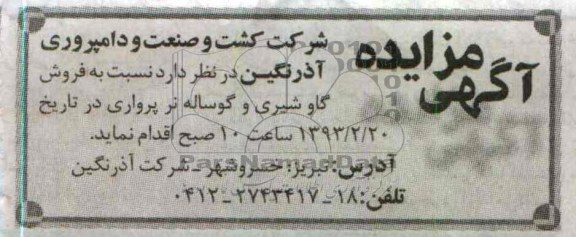 آگهی مزایده
شرکت کشت و صنعت و دامپروری
آذرنگین در نظر دارد نسبت به فروش
گاو شیری و گوساله نر پرواری در تاریخ
۱۳۹۳/۲/۲۰ ساعت ۱۰ صبح اقدام نماید.
آدرس: تبریز، خسروشهر ـ شرکت آذرنگین
تلفن: ۱۸ ـ ۲۷۴۳۴۱۷ ـ ۰۴۱۲
ParsNamadData